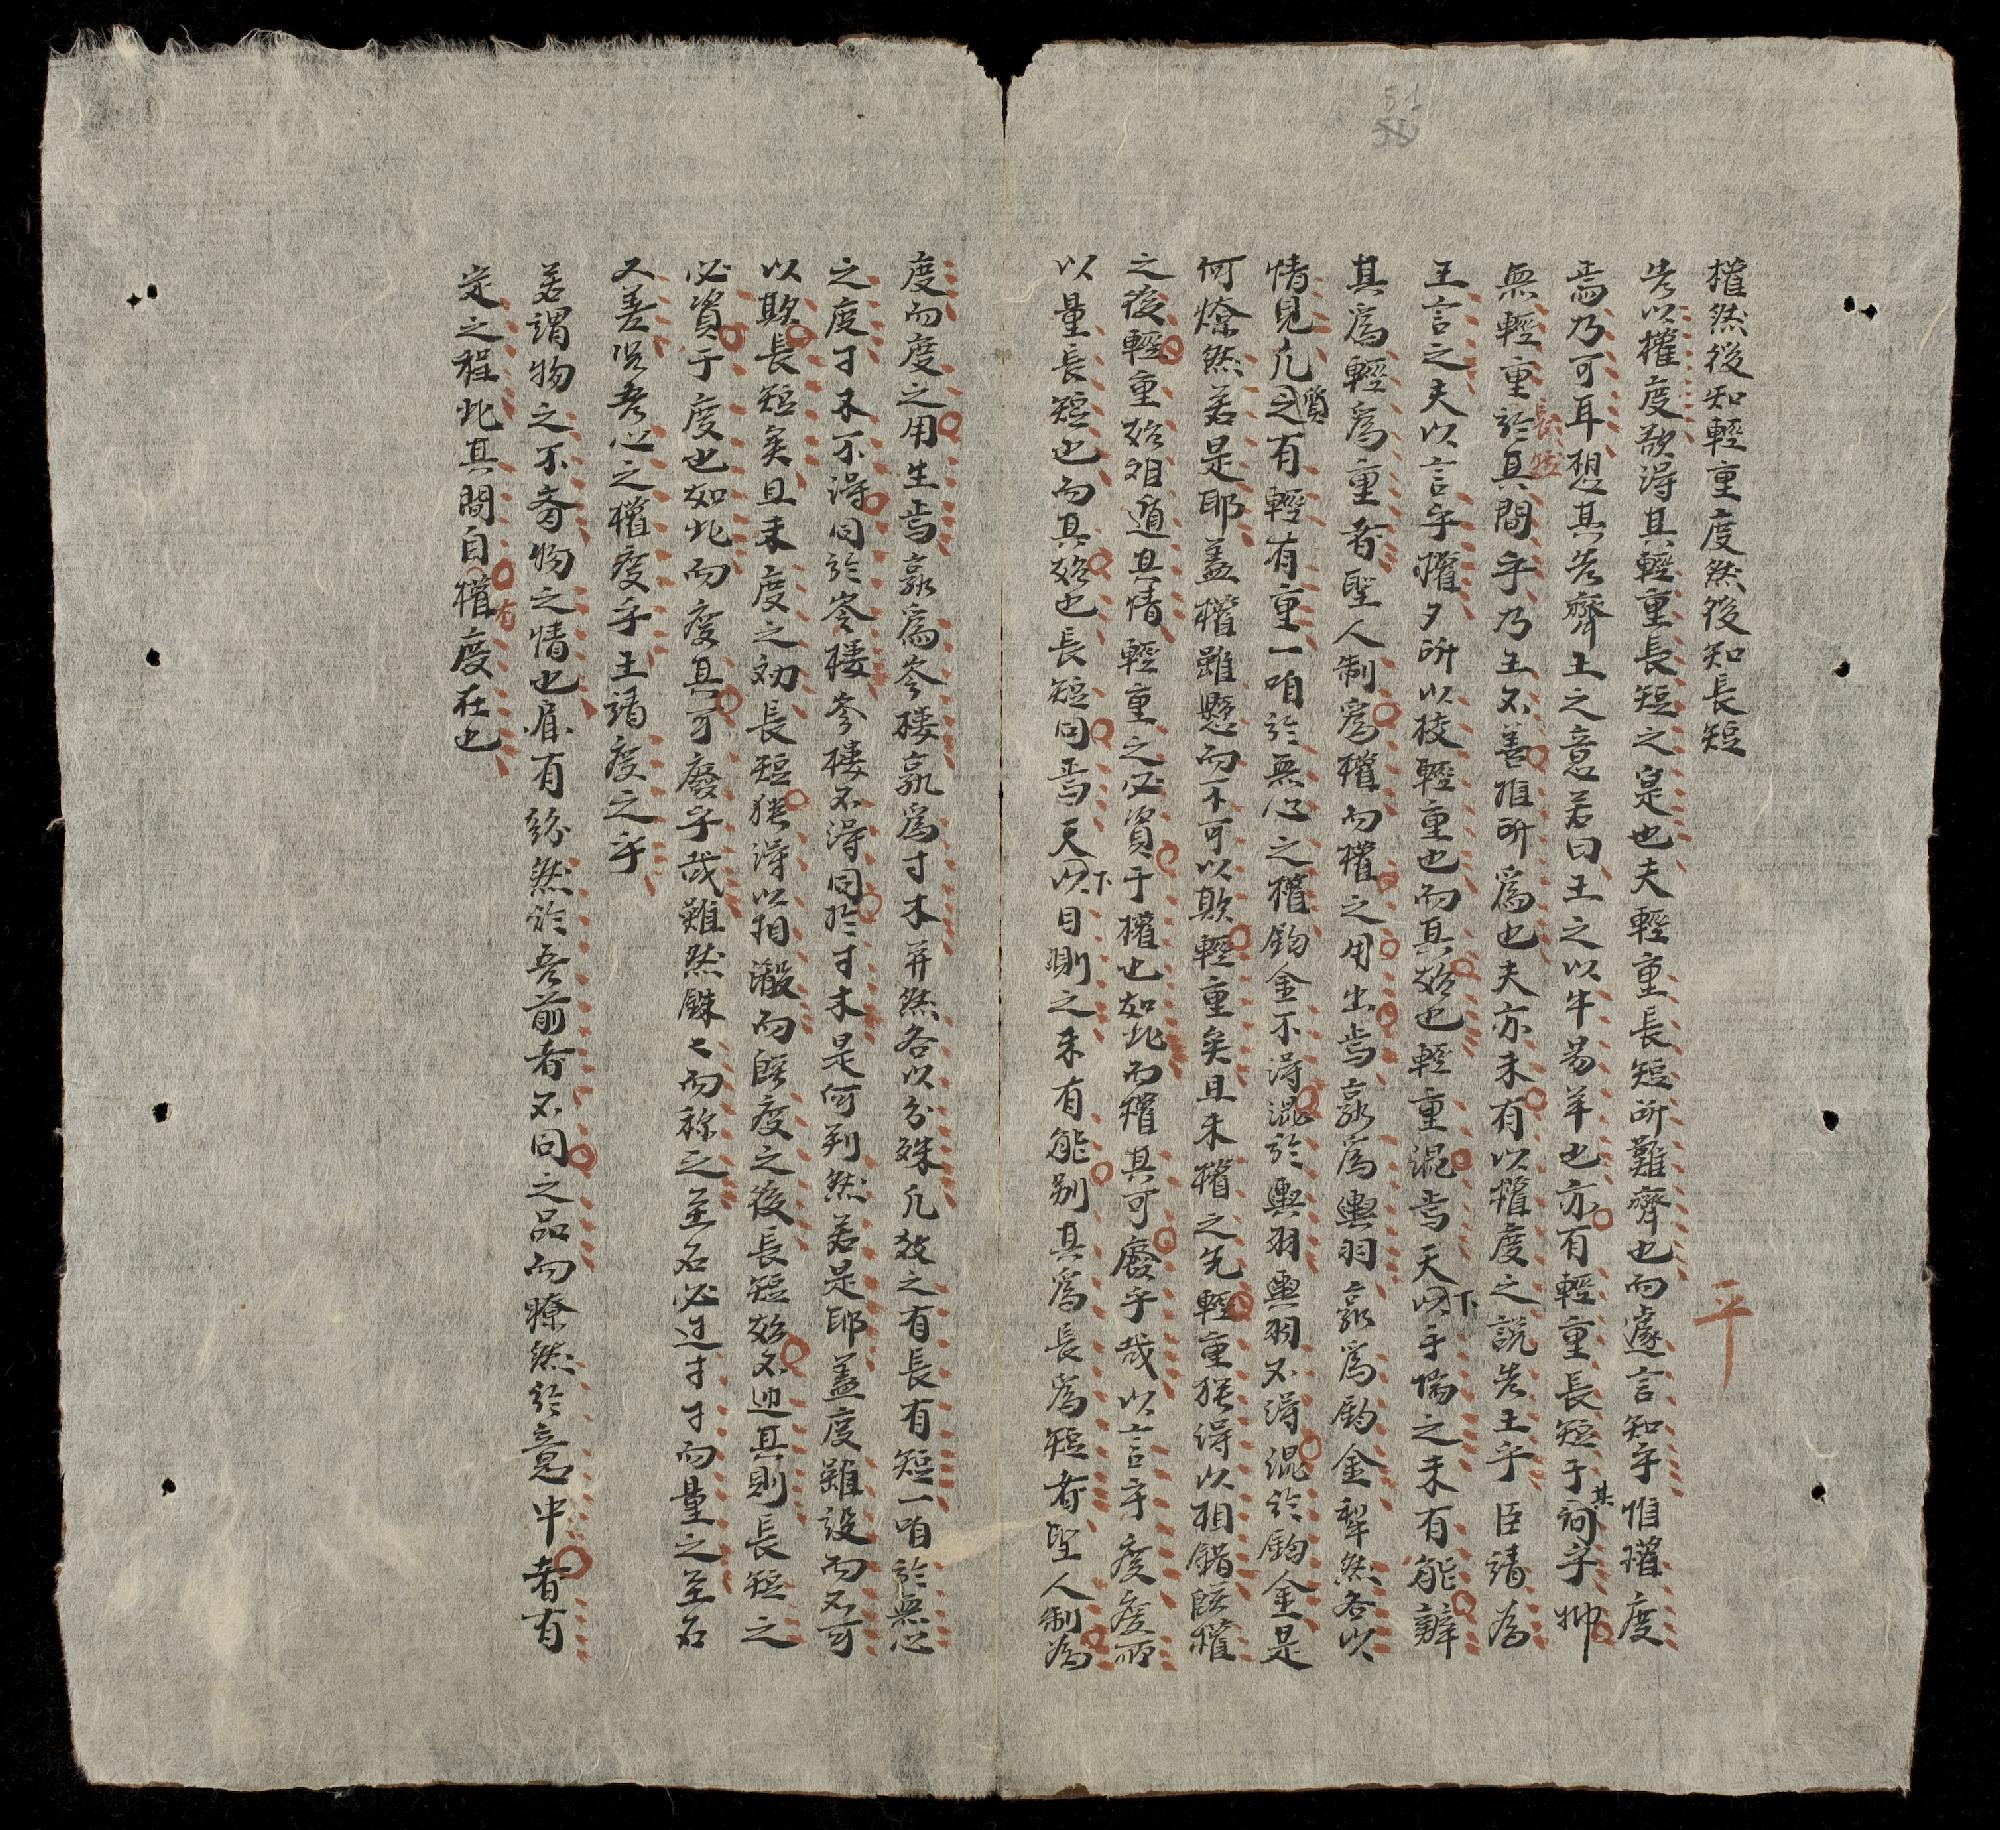 權然後知輕重度然後知長短
平
告以權度欲得其輕重長短之寔也夫輕重長短所難齊也而遽言知乎惟權度
焉乃可耳想其告齊王之意若曰王之以牛易羊也亦有輕重長短于其詞乎抑
無輕重長短於其間乎乃王不善推所爲也夫亦未有以權度之說告王乎臣請爲
王言之夫以言乎權夕所以校輕重也而其始也輕重混焉天下以手揣之未有能辨
其爲輕爲重者聖人制爲權而權之用出焉孰爲輿羽孰爲鈞金犁然各以
情見凡質之有輕有重一咱於無心之權鈞金不得混於輿羽輿羽不得混於鈞金是
何燎然若是耶蓋權雖懸而不可以欺輕重矣且未權之先輕重猶得以相錯旣權
之後輕重始难遁其情輕重之必資于權也如此而權其可廢乎哉以言乎度度所
以量長短也而其始也長短同焉天下以目測之未有能別其爲長爲短者聖人制爲
度而度之用生焉孰爲岑樓孰爲寸木井然各以分殊凡数之有長有短一咱於無心
之度寸木不得同於岑樓岑樓不得同於寸木是何判然若是耶蓋度雖設而不可
以欺長短矣且未度之初長短猶得以相淆而旣度之後長短始不迎其則長短之
必資于度也如此而度其可廢乎哉雖然銖〻而稱之至石必过寸寸而量之至石
又差况吾心之權度乎王請度之乎
若謂物之不齊物之情也雇有紛然於吾前者不同之品而瞭然於意中者有
定之程此其間自有權度在也